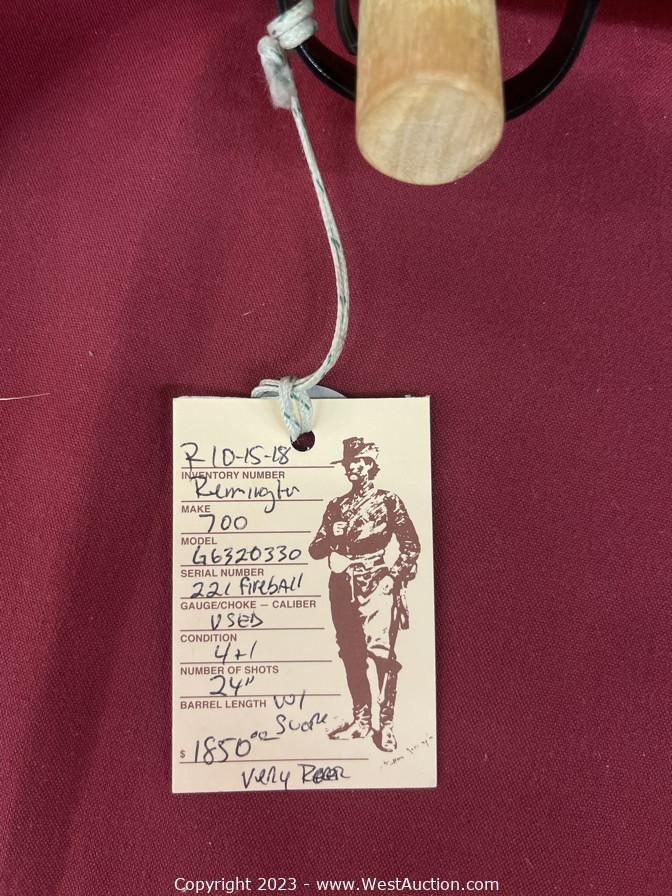 R 10-15-18
INVENTORY NUMBER
Remington
MAKE
700
MODEL
G6320330
SERIAL NUMBER
221 fireball
GAUGE/CHOKE — CALIBER
USED
CONDITION
4+1
NUMBER OF SHOTS
24"
BARREL LENGTH W/
Scope
$ 1850 00
Very
Copyright 2023 - www.WestAuction.com